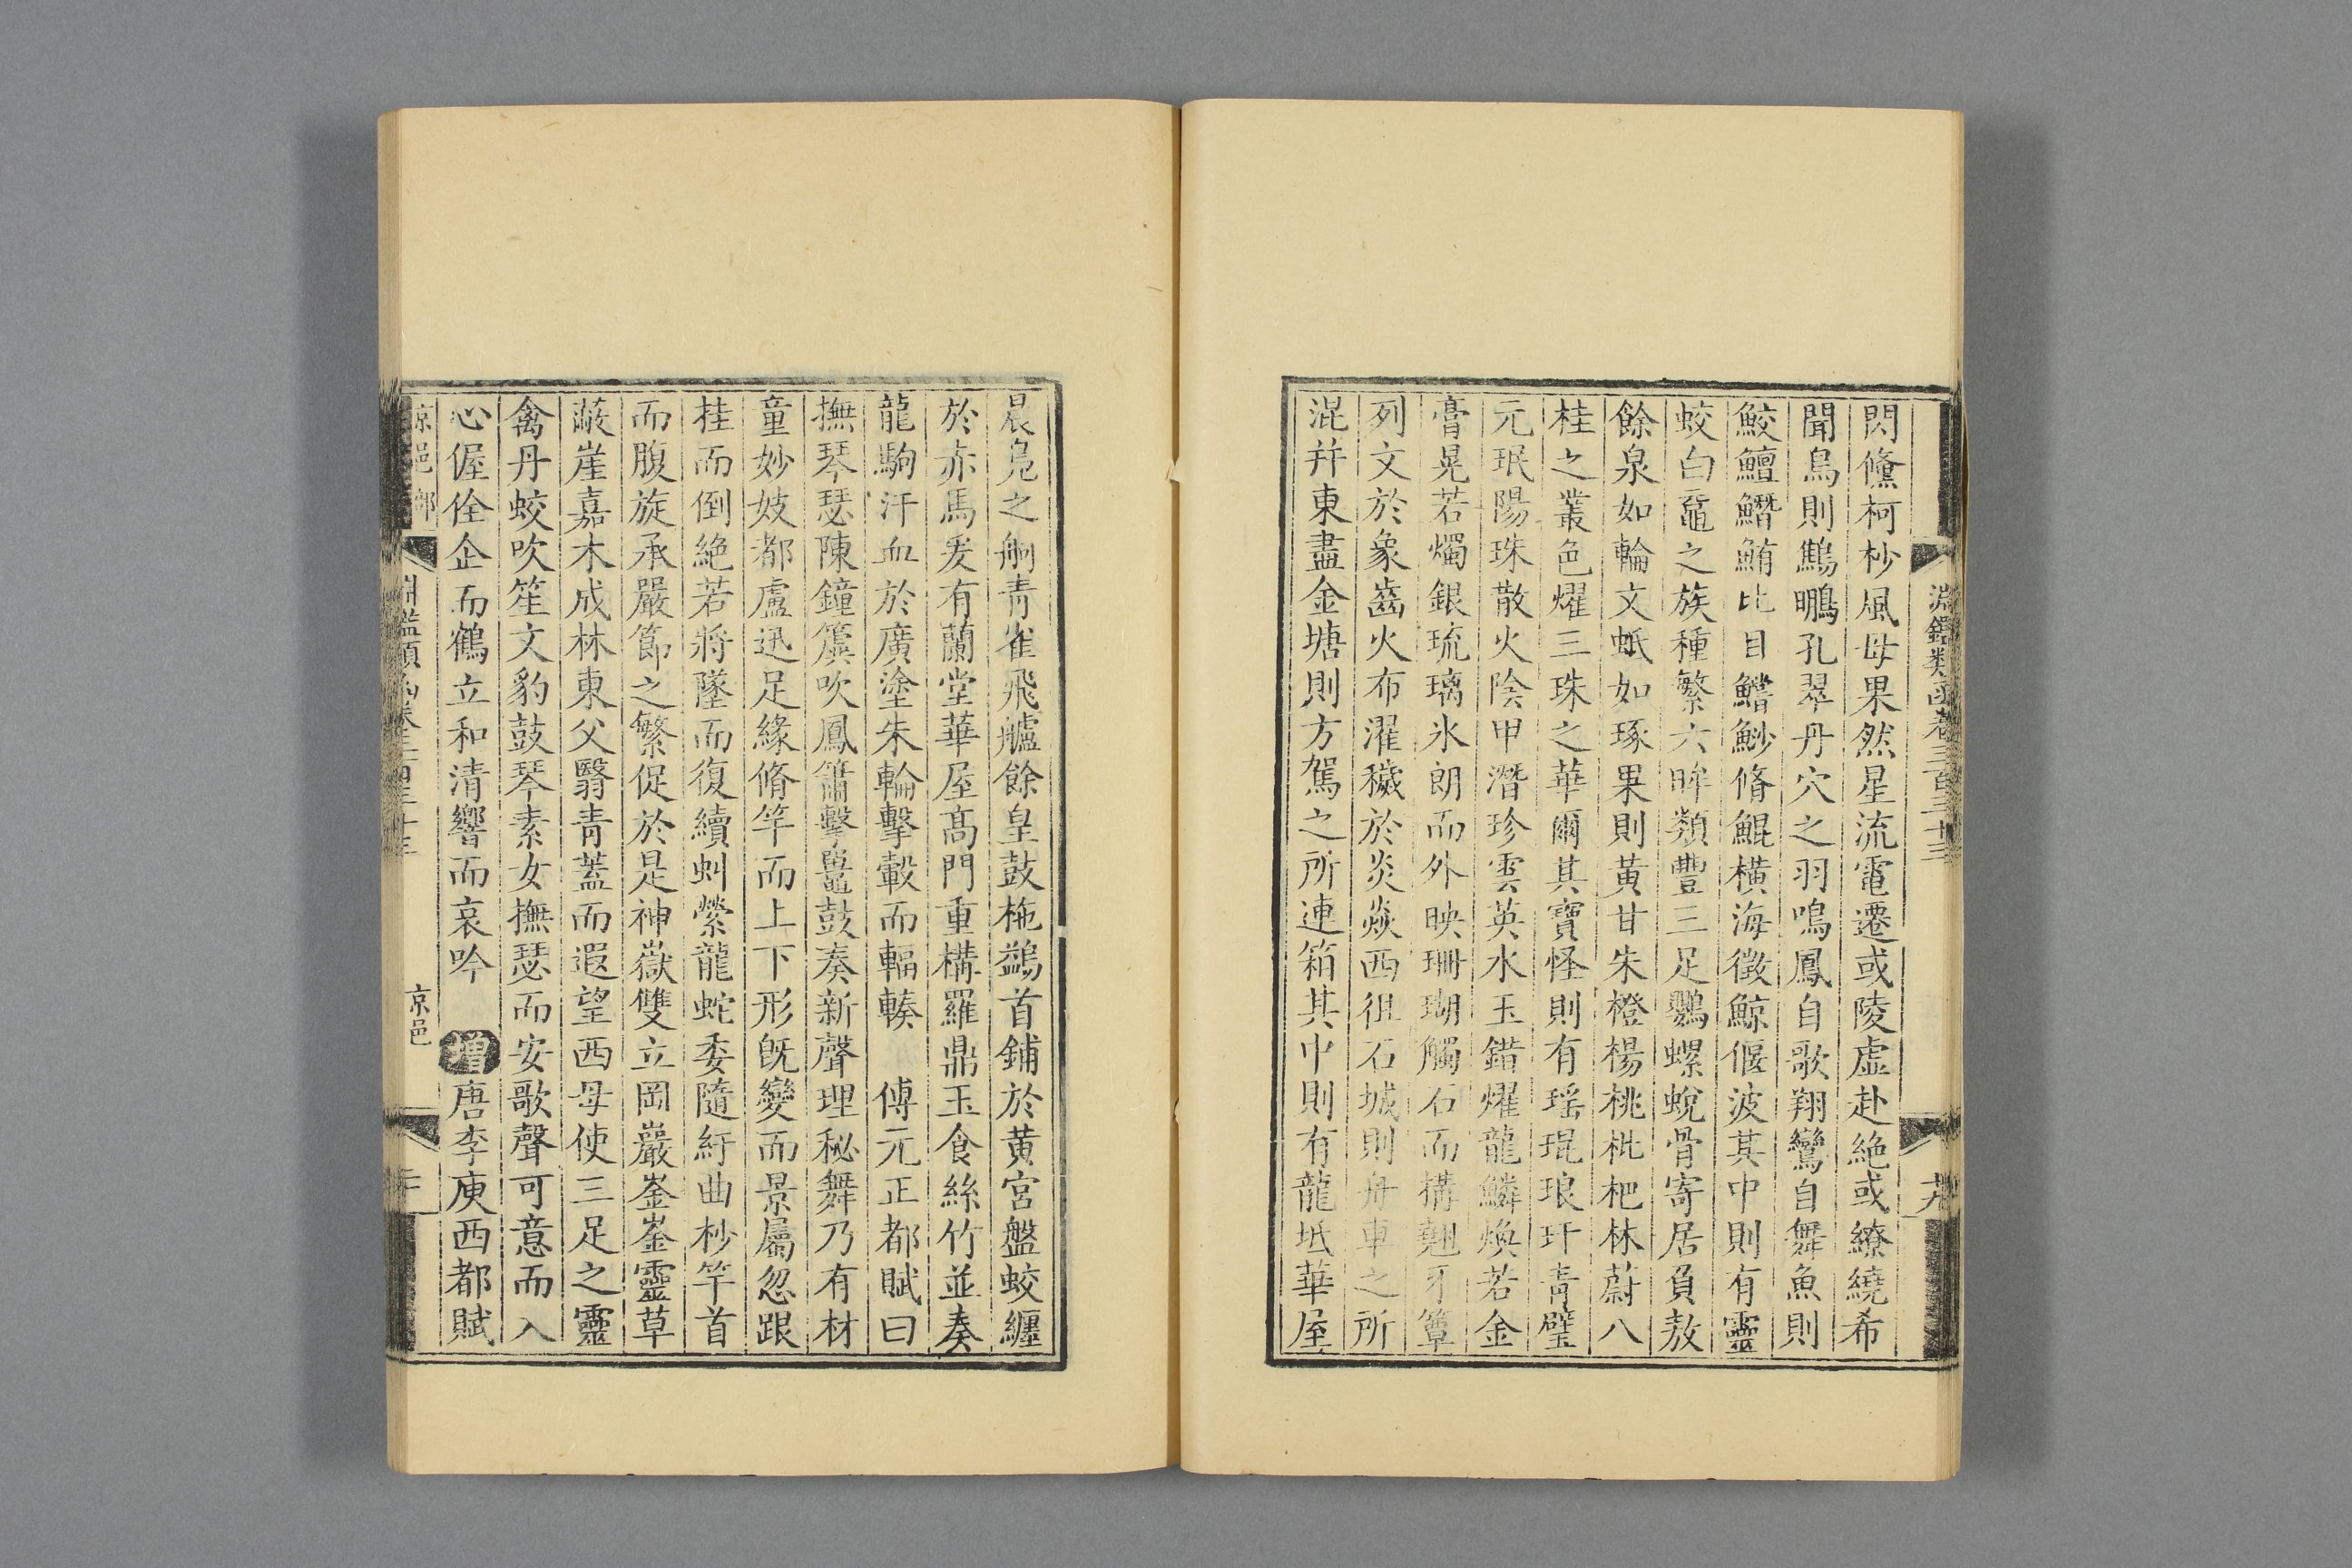 淵鑑類函卷三百三十三
閃儵柯杪風母果然星流電遷或陵虛赴絶或繚繞希
聞鳥則鷦鵬孔翠丹穴之羽鳴鳳自歌翔鸞自舞魚則
鮫鱣鱕鮪比目鱨魦脩鯤橫海徵鯨偃波其中則有靈
蛟白黿之族種繁六眸類豐三足鸚螺蛻骨寄居負敖
餘泉如輪文蚳如琢果則黃甘朱橙楊桃枇杷林蔚八
桂之叢色燿三珠之華爾其寶怪則有瑶琨琅玕青璧
元珉陽珠散火陰甲潛珍雲英水玉錯燿龍鱗煥若金
膏晃若燭銀琉璃氷朗而外映珊瑚觸石而構翹牙簟
列文於象齒火布濯穢於炎焱西徂石城則舟車之所
混并東盡金塘則方駕之所連箱其中則有龍坻華屋
晨鳧之舸青雀飛艫餘皇鼓柂鷁首鋪於黄宮盤蛟纏
於赤馬爰有蘭堂華屋高門重構羅鼎玉食絲竹並奏
龍駒汗血於廣塗朱輪擊轂而輻輳 傅元正都賦曰
撫琴瑟陳鐘簴吹鳳簫擊鼉鼓奏新聲理秘舞乃有材
童妙妓都盧迅足緣脩竿而上下形旣變而景屬忽跟
桂而倒絶若將墜而復續虯縈龍蛇委隨紆曲杪竿首
而腹旋承嚴節之繁促於是神嶽雙立岡巖崟崟靈草
蔽崖嘉木成林東父翳青蓋而遐望西母使三足之靈
禽丹蛟吹笙文豹鼓琴素女撫瑟而安歌聲可意而入
心偓佺企而鶴立和清響而哀吟 增唐李庾西都賦
京邑